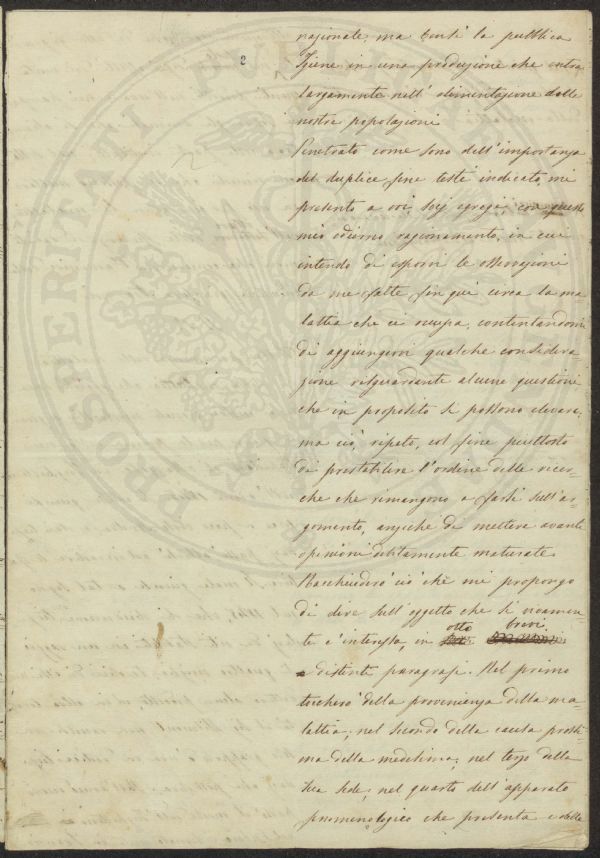 2
nazionale, ma bensì la pubblica
Igiene in una produzione che entra
largamente nell' alimentazione delle
nostre popolazioni
Penetrato come sono dell' importanza
del duplice fine testè indicato, mi
presento a voi, Sig.j egregi con questo
mio odierno ragionamento, in cui
intendo di esporvi le osservazioni
da me fatte fin quì circa la ma
lattia che ci occupa, contentandomi
di aggiungervi qualche considera-
zione risguardante alcune questioni
che in proposito si possono elevare,
ma ciò, ripeto, col fine piuttosto
di prestabilire l'ordine delle ricer-
che che rimangono a farsi sull'ar-
gomento, anzichè di mettere avanti
opinioni debitamente maturate.
Racchiuderò ciò che mi propongo
di dire sull' oggetto che sì vivamen-
te c' interessa, in otto brevi
e distinte paragrafi. Nel primo
toccherò della provenienza della ma-
lattia; nel secondo della causa prossi-
ma della medesima; nel terzo della
sua sede; nel quarto dell'apparato
fenomenologico che presenta e delle
PROSPERITATI PUBLICAE